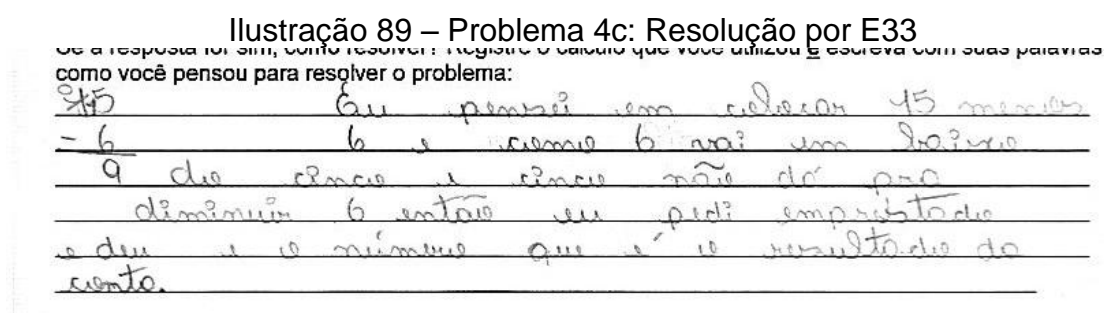 Ilustração 89 – Problema 4c: Resolução por E33
Se a resposta for sim, como resolver? Registre o cálculo que você utilizou e escreva com suas palavras
como você pensou para resolver o problema:
15 Eu pensei em colocar 15 menos
- 6 6 e como 6 vai em baixo
9 do cinco e cinco não dá pra
diminuir 6 então eu pedi emprestado
e deu e o número que é o resultado da
conta.